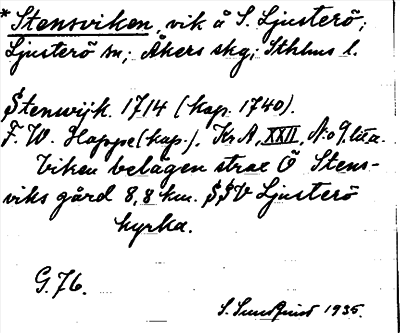 * Stensviken, vik å S. Ljusterö;
Ljusterö sn; Åkers skg; Sthlms l.
Stenwijk. 1714 (kop. 1740).
F. W. Happe (kop.). Kr A, XXII, No 9, litt. a.
Viken belägen strax Ö Stens-
viks gård 8,8 km. SSV Ljusterö
kyrka.
G. 76.
S. Sundquist 1935.